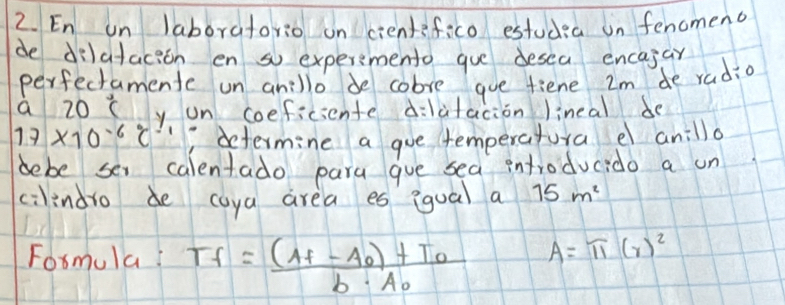 2. En un laboratorio un cientifico estudia un fenomeno
de dilatación en su experimento que desea encajar
perfectamente un anillo de cobre que tiene 2m de radio
a 20 °C y un coeficiente dilatación lineal de
17 x10⁻⁶ °C⁻¹; determine a que temperatura el anillo
debe ser calentado para que sea introducido a un
cilindro de cuya área es igual a 15 m²
Formula: Tf = (Af - A₀) + T₀ / b · A₀ A = π (r)²